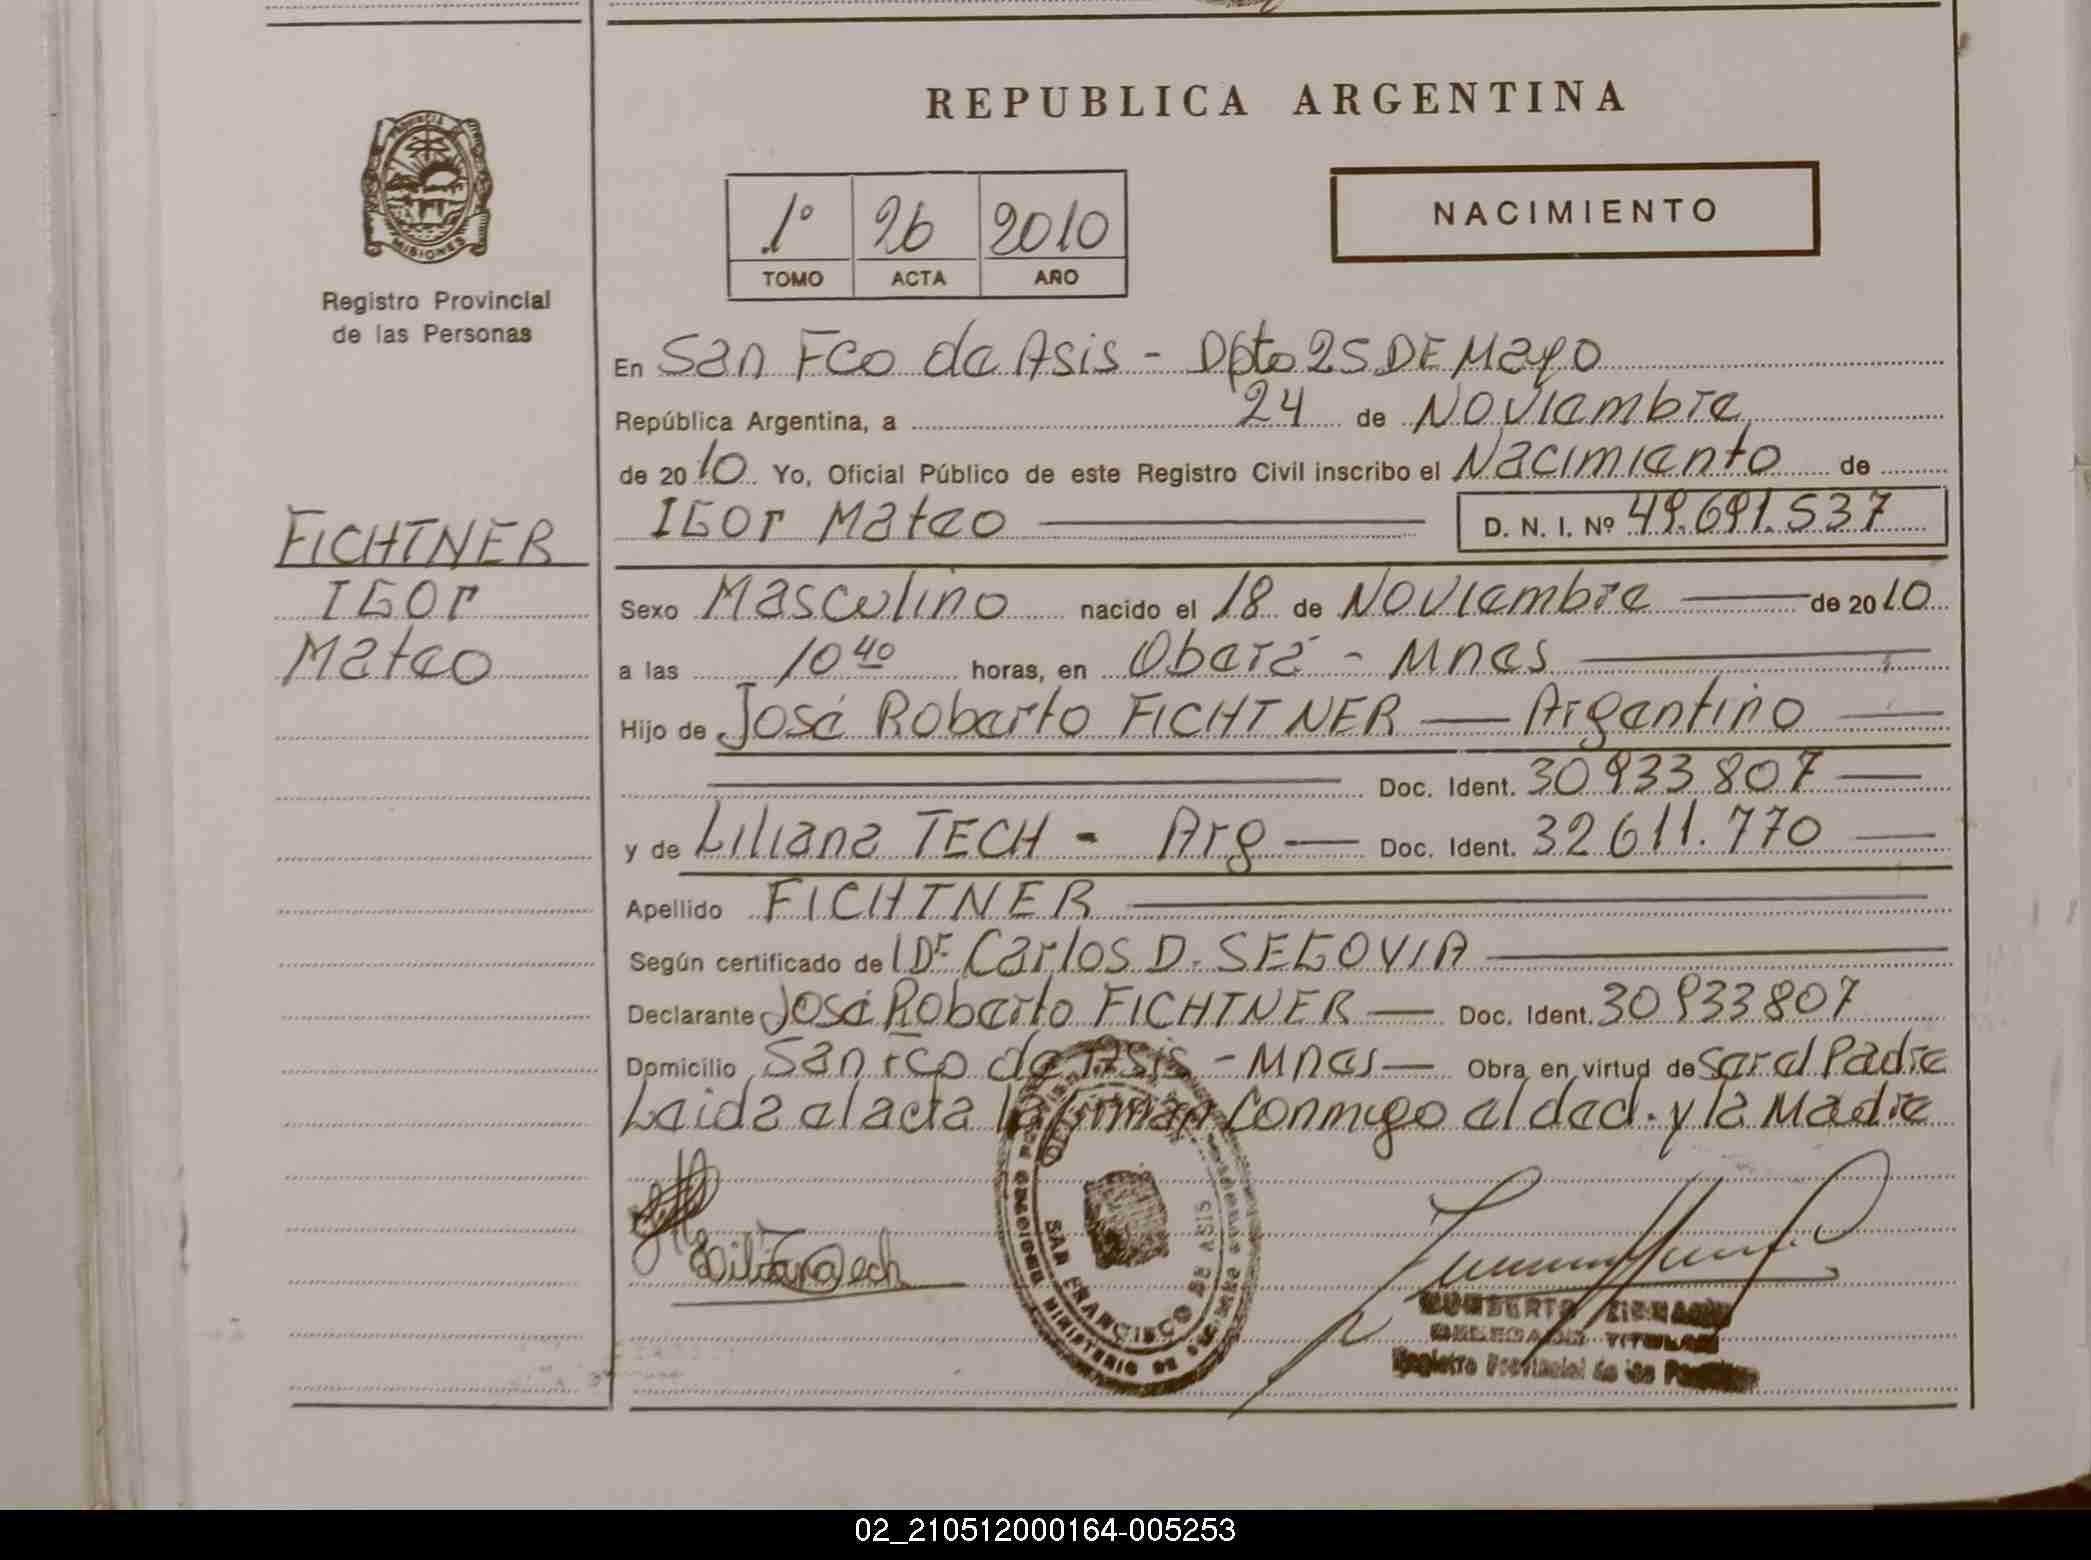 REPUBLICA ARGENTINA
PROVINCIA DE
MISIONES
Registro Provincial
de las Personas
NACIMIENTO
1º 26 2010
TOMO ACTA AÑO
En San Fco de Asis - Dpto 25 DE Mayo
República Argentina, a 24 de Noviembre
de 2010 Yo, Oficial Público de este Registro Civil inscribo el Nacimiento de
IGOr Mateo D. N. I. Nº 49.691.537
FICHTNER
IGOr
Mateo
Sexo Masculino nacido el 18 de Noviembre de 2010
a las 10 40 horas, en Oberá - Mnes
Hijo de José Roberto FICHTNER Argentino
Doc. Ident. 30933807
y de Liliana TECH - Arg Doc. Ident. 32611.770
Apellido FICHTNER
Según certificado de l Dr Carlos D. SEGOVIA
Declarante José Roberto FICHTNER Doc. Ident. 30933807
Domicilio San Fco de Asis - Mnes Obra en virtud de Ser el Padre
Leida el acta la firman Conmigo el decl. y la Madre
SAN FRANCISCO DE ASIS
MINISTERIO DE
DELEGADO TITULAR
Registro Provincial de las Personas
02_210512000164-005253